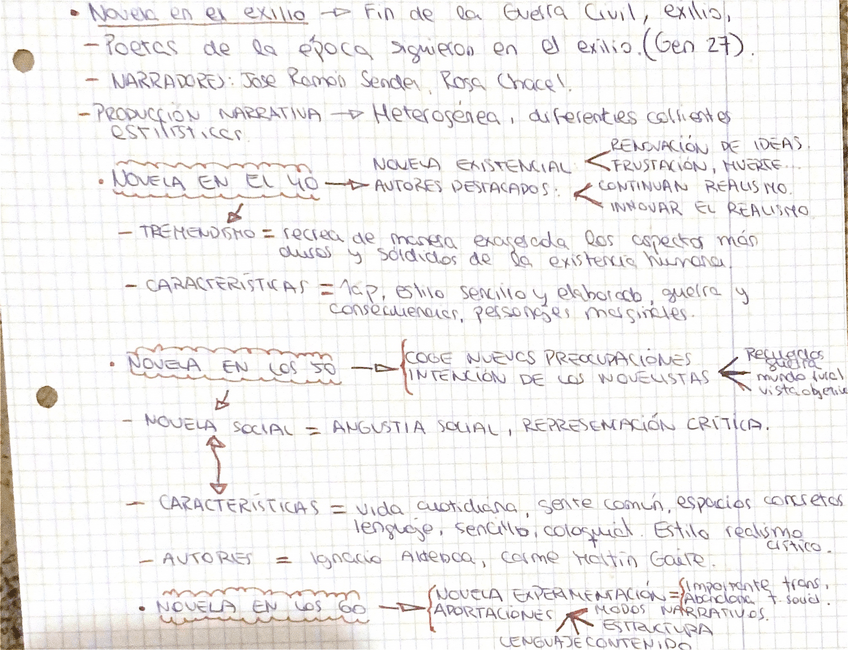 • Novela en el exilio → Fin de la Guerra Civil, exilio,
- Poetas de la época siguieron en el exilio. (Gen 27).
- NARRADORES: Jose Ramón Sender, Rosa Chacel.
- PRODUCCIÓN NARRATIVA → Heterogénea, diferentes corrientes
estilísticas.
• NOVELA EN EL 40 → NOVELA EXISTENCIAL < RENOVACIÓN DE IDEAS.
FRUSTACIÓN, MUERTE...
AUTORES DESTACADOS: < CONTINUAN REALISMO.
INNOVAR EL REALISMO
- TREMENDISMO = recrea de manera exagerada los aspectos más
duros y sórdidos de la existencia humana.
- CARACTERÍSTICAS = 1ªp, estilo sencillo y elaborado, guerra y
consecuencias, personajes marginales.
• NOVELA EN LOS 50 → COGE NUEVAS PREOCUPACIONES
INTENCIÓN DE LOS NOVELISTAS < Recuerdos
guerra
mundo rural
vista objetiva
- NOVELA SOCIAL = ANGUSTIA SOCIAL, REPRESENTACIÓN CRÍTICA.
- CARACTERÍSTICAS = vida cuotidiana, gente común, espacios concretos
lenguaje, sencillo, coloquial. Estilo realismo
crítico.
- AUTORES = Ignacio Aldecoa, Carme Martín Gaite.
• NOVELA EN LOS 60 → NOVELA EXPERIMENTACIÓN = Importante trans.
Abandona t. social.
APORTACIONES < MODOS NARRATIVOS.
ESTRUCTURA
LENGUAJE CONTENIDO